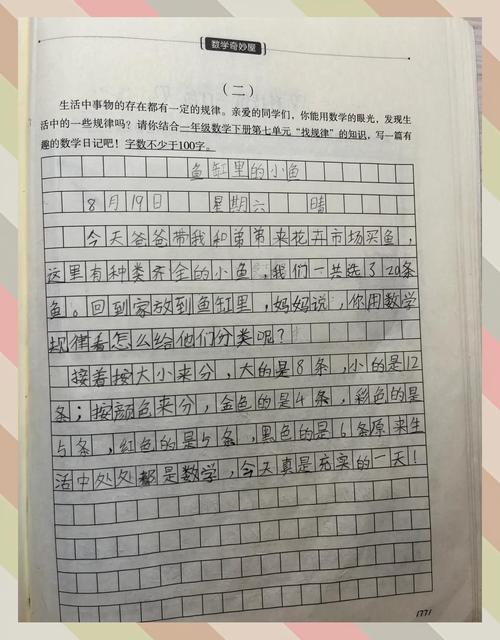 数学奇妙屋
（二）
生活中事物的存在都有一定的规律。亲爱的同学们，你能用数学的眼光，发现生
活中的一些规律吗？请你结合一年级数学下册第七单元“找规律”的知识，写一篇有
趣的数学日记吧！字数不少于100字。
鱼缸里的小鱼
8月19日 星期六 晴
今天爸爸带我和弟弟来花卉市场买鱼，
这里有种类齐全的小鱼，我们一共选了20条
鱼。回到家放到鱼缸里，妈妈说，你用数学
规律看怎么给他们分类呢？
接着按大小来分，大的是8条，小的是12
条；按颜色来分，金色的是4条，彩色的是
5条，红色的是5条，黑色的是6条原来生
活中处处都是数学，今天真是充实的一天！
1771